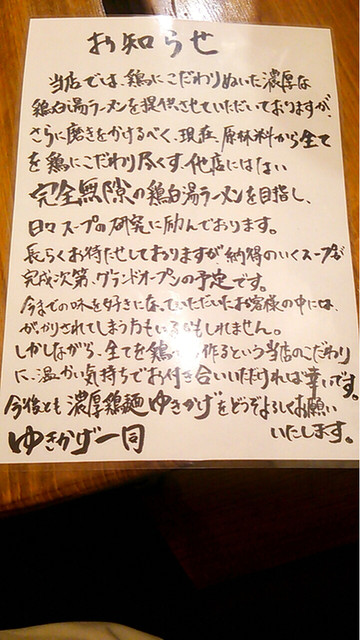 お知らせ
当店では、鶏にこだわりぬいた濃厚な
鶏白湯ラーメンを提供させていただいておりますが、
さらに磨きをかけるべく、現在、原材料から全て
を鶏にこだわり尽くす、他店にはない
完全無隙の鶏白湯ラーメンを目指し、
日々スープの研究に励んでおります。
長らくお待たせしておりますが、納得のいくスープが
完成次第、グランドオープンの予定です。
今までの味を好きになっていただいたお客様の中には、
がっかりされてしまう方もいるかもしれません。
しかしながら、全てを鶏 作るという当店のこだわり
に、温かい気持ちでお付き合いいただければ幸いです。
今後とも濃厚鶏麺ゆきかげをどうぞよろしくお願い
いたします。
ゆきかげ一同